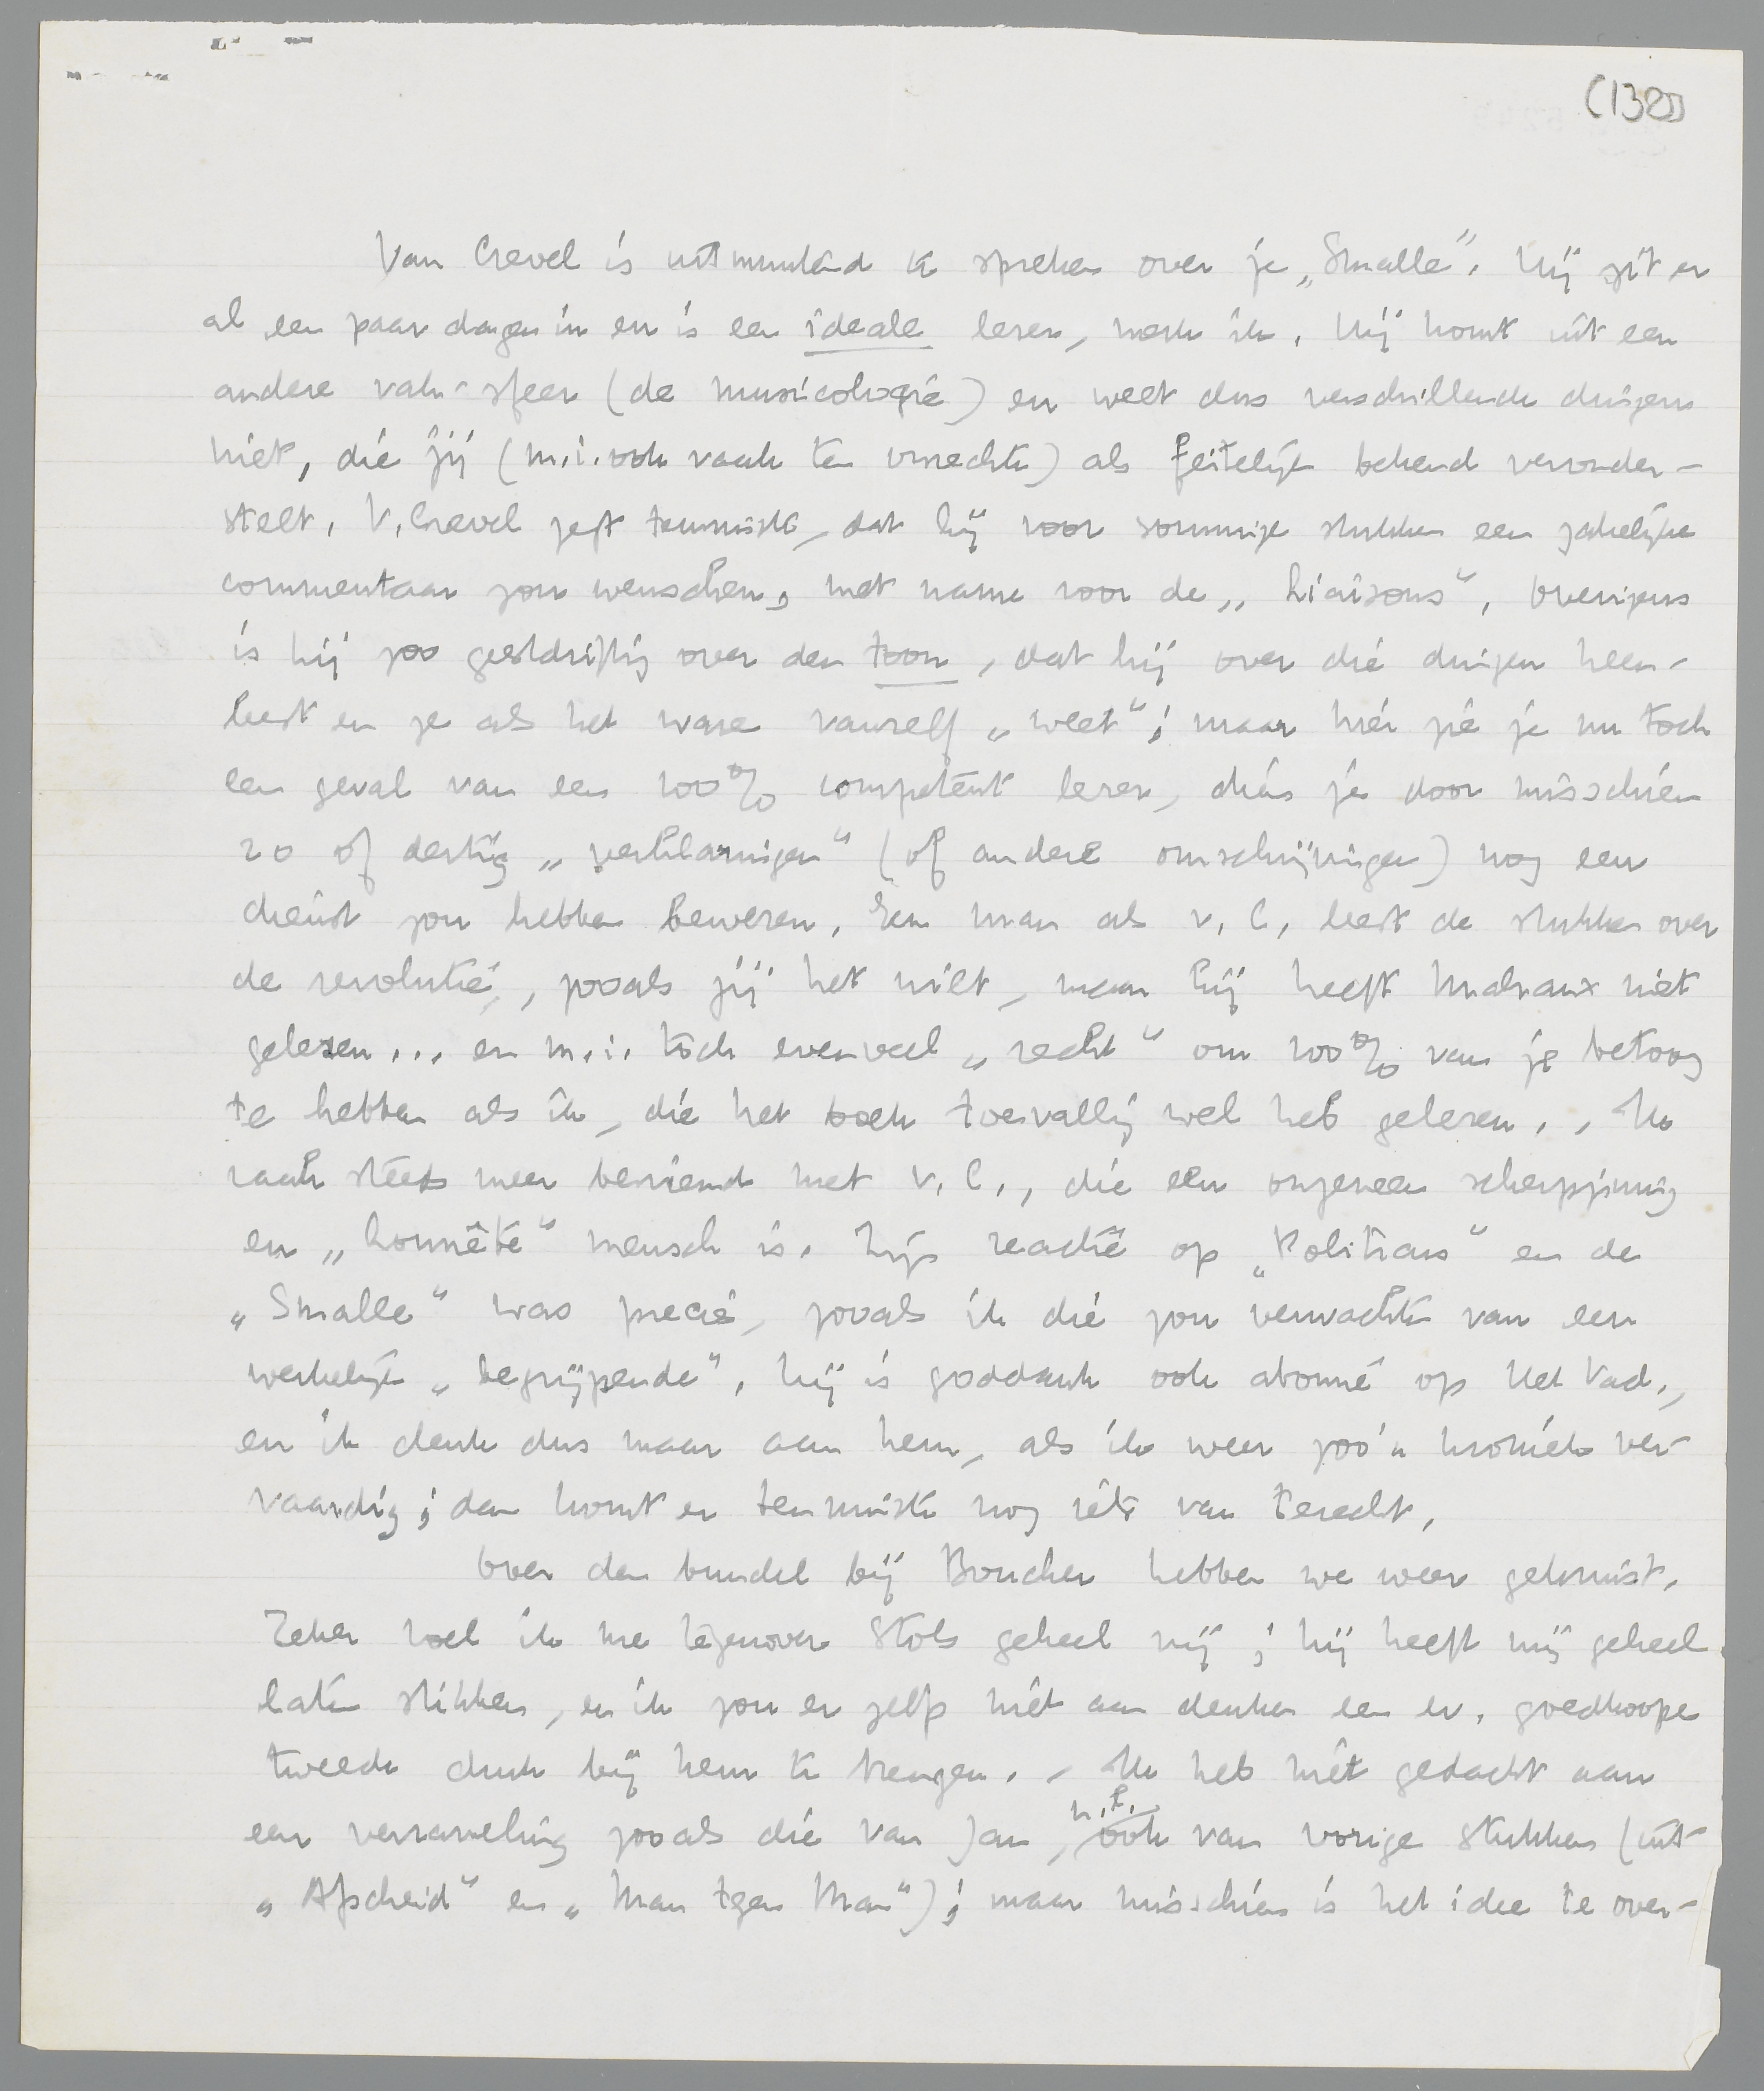 (1385)
Van Crevel is uitmuntend te spreken over je „Smalle”. Hij zit er
al een paar dagen in en is een ideale lezer, merk ik. Hij komt uit een
andere vak-sfeer (de musicologie) en weet dus verschillende dingen
niet, die jij (m.i. ook vaak ten onrechte) als feitelijk bekend veronder-
stelt. V. Crevel zegt tenminste, dat hij voor sommige stukken een zakelijke
commentaar zou wenschen, met name voor de „Liaisons”. Overigens
is hij zoo geestdriftig over den toon, dat hij over die dingen heen-
leest en ze als het ware vanzelf „weet”; maar hier zie je nu toch
een geval van een 100% competent lezer, dien je door misschien
20 of dertig „verklaringen” (of andere omschrijvingen) nog een
dienst zou hebben bewezen. Een man als v. C. leest de stukken over
de revolutie, zooals jij het wilt, maar hij heeft Malraux niet
gelezen... en m.i. toch evenveel „recht” om 100% van je betoog
te hebben als ik, die het boek toevallig wel heb gelezen. - Ik
raak steeds meer bevriend met v. C., die een ongemeen scherpzinnig
en „honnête” mensch is. Zijn reactie op „Politicus” en de
„Smalle” was precies, zooals ik die zou verwachten van een
werkelijk „begrijpende”. Hij is goddank ook abonné op Het Vad.,
en ik denk dus maar aan hem, als ik weer zoo'n kroniek ver-
vaardig; dan komt er tenminste nog iets van terecht.
Over den bundel bij Boucher hebben we weer gekruist.
Zeker voel ik me tegenover Stols geheel vrij; hij heeft mij geheel
laten stikken, en ik zou er zelfs niet aan denken een ev. goedkoope
tweede druk bij hem te brengen. - Ik heb niet gedacht aan
een verzameling zooals die van Jan, n.l. ook van vorige stukken (uit
„Afscheid” en „Man tgen Man”); maar misschien is het idee te over-